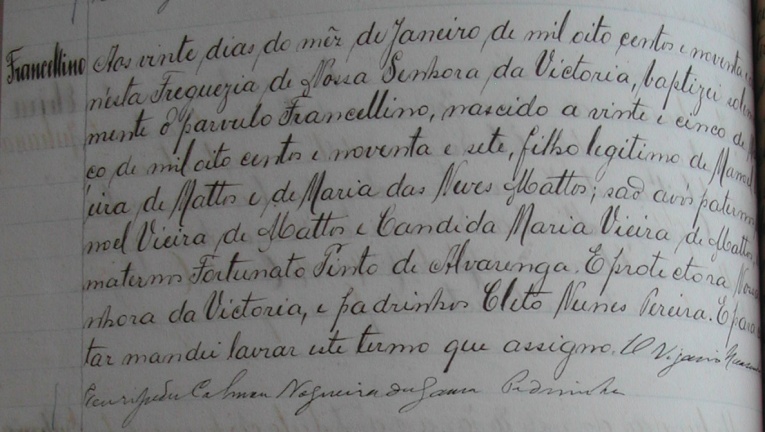 Francellino
Aos vinte dias do mêz de Janeiro de mil oito centos e noventa e
nésta Freguezia de Nossa Senhora da Victoria, baptizei solem
mente o parvulo Francellino, nascido a vinte e cinco de
ço de mil oito centos e noventa e sete, filho legitimo de Manoel
eira de Mattos e de Maria das Neves Mattos; saõ avós paternos
noel Vieira de Mattos e Candida Maria Vieira de Mattos
maternos Fortunato Pinto de Alvarenga. E protectora Nossa
nhora da Victoria, e padrinhos Cleto Nunes Pereira. E para
tar mandei lavrar este termo que assigno. O Vigario
Euripedes Calman Nogueira da Gama Pedrinha